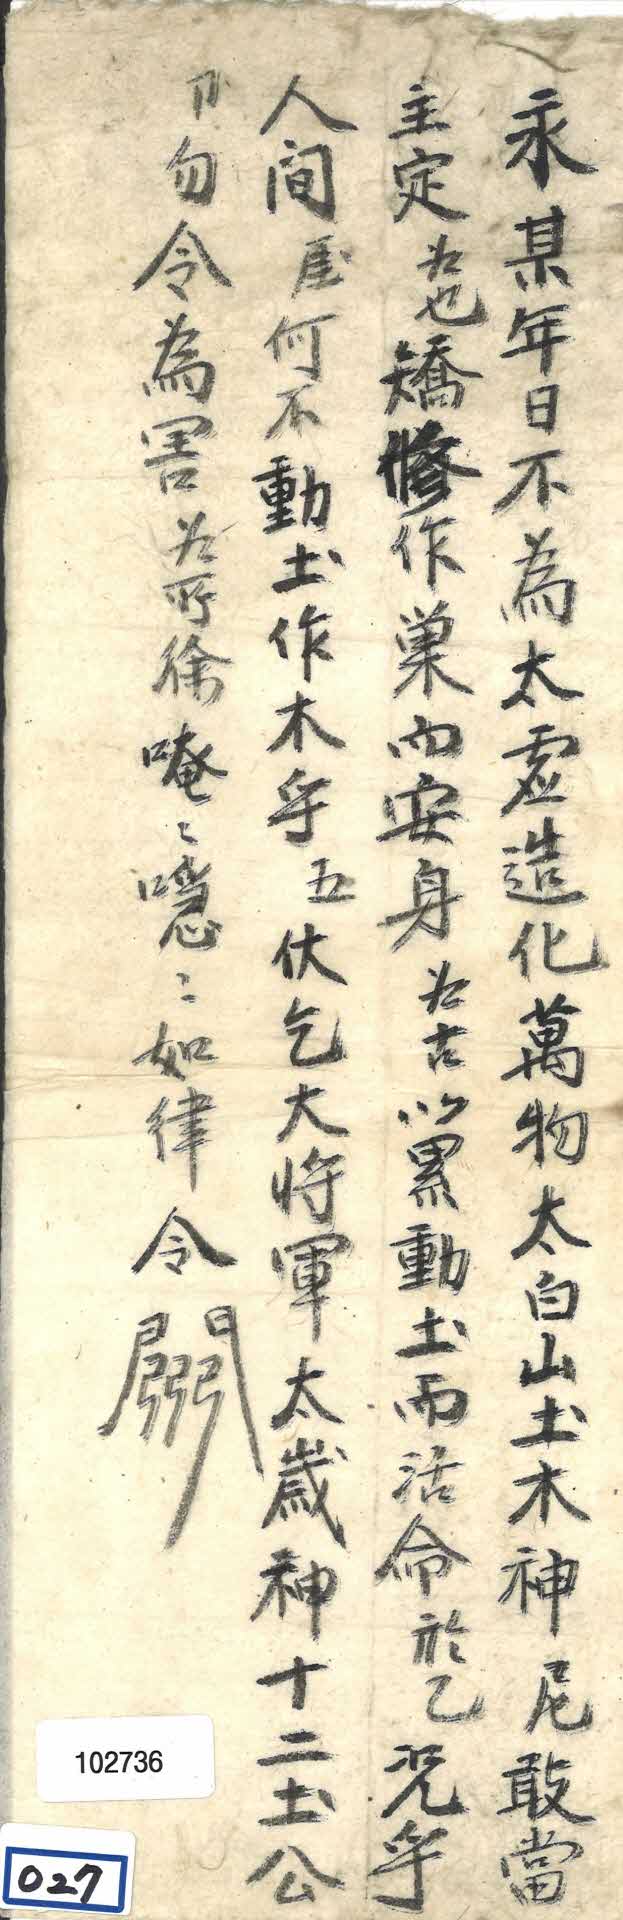 永某年日不為太虛造化萬物太白山土木神尼敢當
主定為也矯修作巢而安身為古以累動土而活命於乙況乎
人間厓何不動土作木乎五伏乞大將軍太歲神十二土公
卩勿令為害為所徐唵〻噫〻如律令
102736
027